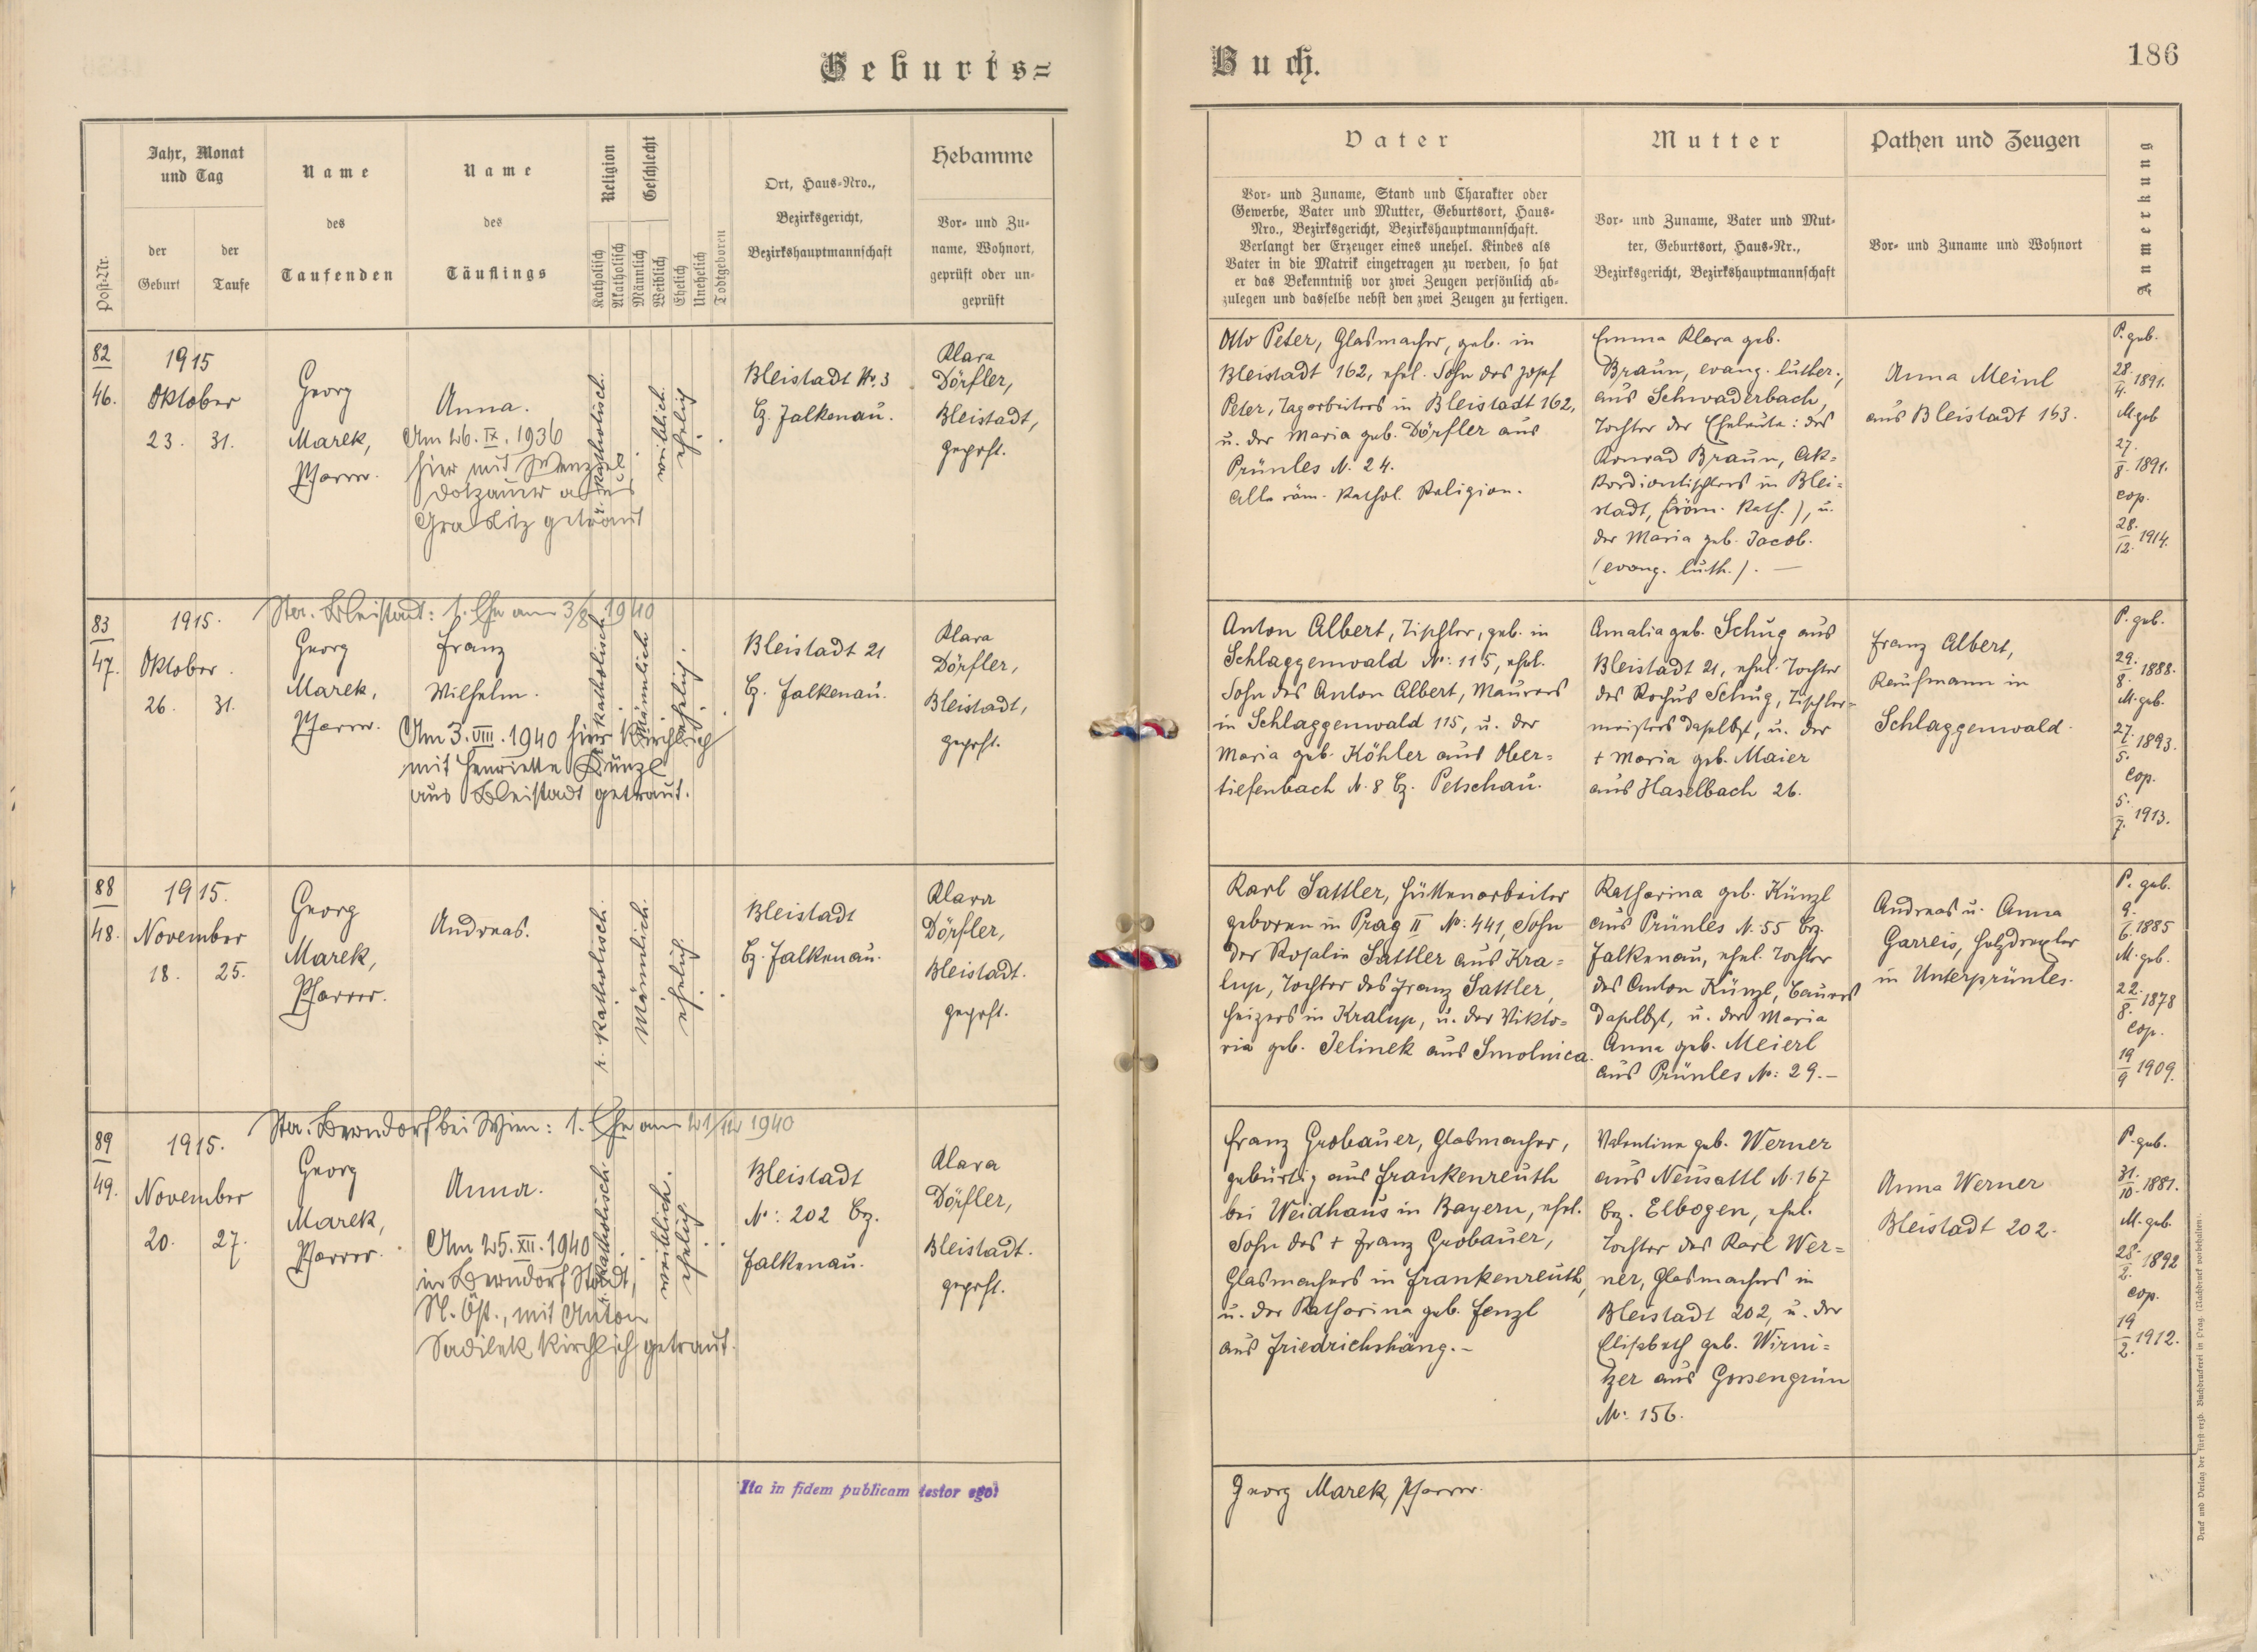 Geburts=
Buch.
186
Post-Nr.
Jahr, Monat
und Tag
der
Geburt
der
Taufe
Name
des
Taufenden
Name
des
Täuflings
Religion
Katholisch
Akatholisch
Geschlecht
Männlich
Weiblich
Ehelich
Unehelich
Todtgeboren
Ort, Haus-Nro.,
Bezirksgericht,
Bezirkshauptmannschaft
Hebamme
Vor- und Zu-
name, Wohnort,
geprüft oder un-
geprüft
Vater
Vor- und Zuname, Stand und Charakter oder
Gewerbe, Vater und Mutter, Geburtsort, Haus-
Nro., Bezirksgericht, Bezirkshauptmannschaft.
Verlangt der Erzeuger eines unehel. Kindes als
Vater in die Matrik eingetragen zu werden, so hat
er das Bekenntniß vor zwei Zeugen persönlich ab-
zulegen und dasselbe nebst den zwei Zeugen zu fertigen.
Mutter
Vor- und Zuname, Vater und Mut-
ter, Geburtsort, Haus-Nr.,
Bezirksgericht, Bezirkshauptmannschaft
Pathen und Zeugen
Vor- und Zuname und Wohnort
Anmerkung
82
46.
1915
Oktober
23. 31.
Georg
Marek,
Pfarrer.
Anna.
Am 26. IX. 1936
hier mit Wenzel
Dotzauer aus
Graslitz getraut
r. katholisch.
weiblich.
ehelich
Bleistadt Nr. 3
Bz. Falkenau.
Klara
Dörfler,
Bleistadt,
geprft.
Otto Peter, Glasmacher, geb. in
Bleistadt 162, ehel. Sohn des Josef
Peter, Tagarbeiters in Bleistadt 162,
u. der Maria geb. Dörfler aus
Prünles N. 24.
Alle röm. kathol. Religion.
Emma Klara geb.
Braun, evang. luther.,
aus Schwaderbach,
Tochter der Eheleute: des
Konrad Braun, Ak=
kordiontischlers in Blei=
stadt, (röm. kath.), u.
der Maria geb. Jacob.
(evang. luth.). —
Anna Meinl
aus Bleistadt 163.
P. geb.
28./4. 1891.
M. geb
27./8. 1891.
cop.
28./12. 1914.
83
47.
1915.
Oktober.
26. 31.
Star. Bleistadt: 1. Ehe am 3/8 1940
Georg
Marek,
Pfarrer.
Franz
Wilhelm.
Am 3. VIII. 1940 hier kirchlich
mit Henriette Künzl
aus Bleistadt getraut.
r. katholisch.
Männlich
ehelich.
Bleistadt 21
Bz. Falkenau.
Klara
Dörfler,
Bleistadt,
geprft.
Anton Albert, Tischler, geb. in
Schlaggenwald N: 115, ehel.
Sohn des Anton Albert, Maurers
in Schlaggenwald 115, u. der
Maria geb. Köhler aus Ober=
tiefenbach N. 8 Bz. Petschau.
Amalia geb. Schug aus
Bleistadt 21, ehel. Tochter
des Rochus Schug, Tischler=
meisters daselbst, u. der
+ Maria geb. Maier
aus Haselbach 26.
Franz Albert,
Kaufmann in
Schlaggenwald.
P. geb.
29./8. 1888.
M. geb.
27./5. 1893.
Cop.
5./7. 1913.
88
48.
1915.
November
18. 25.
Georg
Marek,
Pfarrer.
Andreas.
r. katholisch.
Männlich.
ehelich
Bleistadt
Bz. Falkenau.
Klara
Dörfler,
Bleistadt.
geprft.
Karl Sattler, Hüttenarbeiter
geboren in Prag II N: 441, Sohn
der Rosalie Sattler aus Kra=
lup, Tochter des Franz Sattler,
Heizers in Kralup, u. der Vikto=
ria geb. Jelinek aus Smolnica.
Katharina geb. Künzl
aus Prünles N. 55 Bz.
Falkenau, ehel. Tochter
des Anton Künzl, Bauers
daselbst, u. der Maria
Anna geb. Meierl
aus Prünles N: 29.—
Andreas u. Anna
Garreis, Holzdrexler
in Unterprünles.
P. geb.
9./6. 1885
M. geb.
22./8. 1878
Cop.
19/9 1909.
89
49.
1915.
November
20. 27.
Star. Berndorf bei Wien: 1. Ehe am 21/12 1940
Georg
Marek,
Pfarrer.
Anna.
Am 25. XII. 1940
in Berndorf Stadt,
N. Öst., mit Anton
Sadilek kirchlich getraut.
r. katholisch.
weiblich.
ehelich
Bleistadt
N: 202 Bz.
Falkenau.
Klara
Dörfler,
Bleistadt.
geprft.
Franz Grobauer, Glasmacher,
gebürtig aus Frankenreuth
bei Weidhaus in Bayern, ehel.
Sohn des + Franz Grobauer,
Glasmachers in Frankenreuth,
u. der Katharina geb. Fenzl
aus Friedrichshäng.—
Valentine geb. Werner
aus Neusattl N. 167
Bz. Elbogen, ehel.
Tochter des Karl Wer=
ner, Glasmachers in
Bleistadt 202, u. der
Elisabeth geb. Wirni=
tzer aus Gossengrün
N: 156.
Anna Werner
Bleistadt 202.
P. geb.
31./10. 1881.
M. geb.
28./2. 1892
cop.
19/2. 1912.
Ita in fidem publicam testor ego:
Georg Marek, Pfarrer.
Druck und Verlag der fürst-erzb. Buchdruckerei in Prag. (Nachdruck vorbehalten).